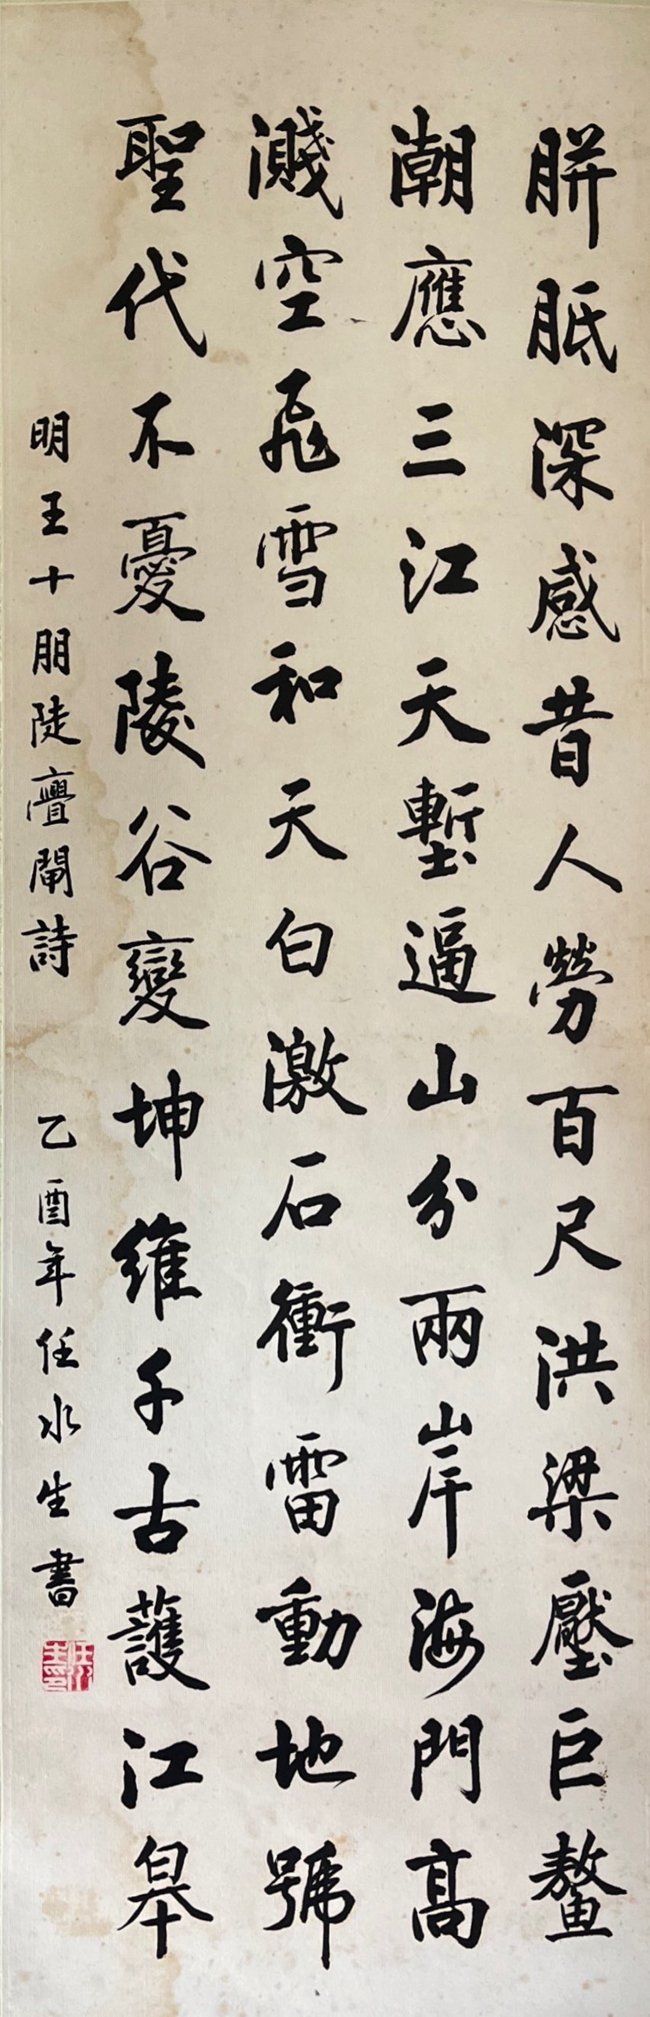 胼胝深感昔人勞百尺洪梁壓巨鰲
潮應三江天塹逼山分兩岸海門高
濺空飛雪和天白激石衝雷動地號
聖代不憂陵谷變坤維千古護江皋
明王十朋陡亹閘詩 乙酉年任水生書